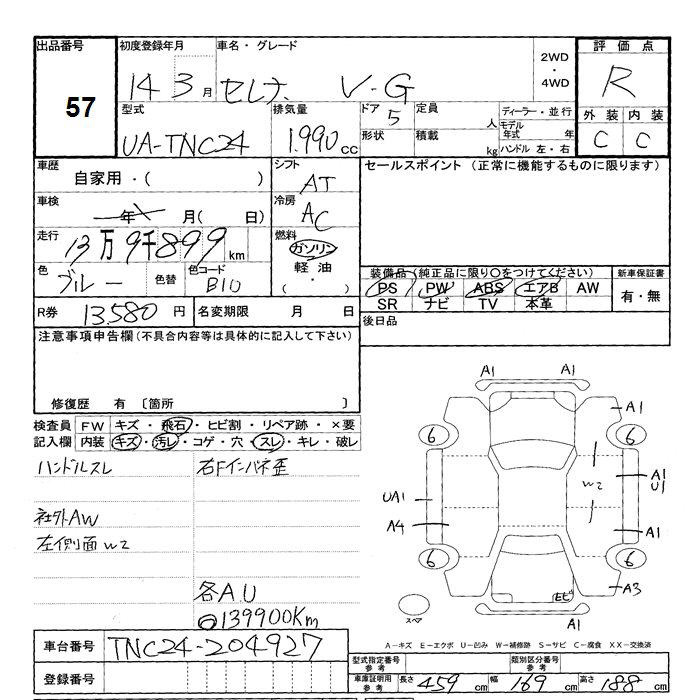 出品番号
57
初度登録年月
14 3 月
車名・グレード
セレナ V-G
2WD
・
4WD
評価点
R
外装 内装
C C
型式
UA-TNC24
排気量
1.990 cc
ドア
5
定員
人
形状
積載
kg
ディーラー・並行
モデル年式 年
ハンドル 左・右
車歴
自家用・( )
シフト
AT
セールスポイント (正常に機能するものに限ります)
車検
年 月( 日)
冷房
AC
走行
13万9千899 km
燃料
ガソリン
軽油
( )
色
ブルー
色替
色コード
B10
装備品(純正品に限り○をつけてください)
PS PW ABS エアB AW
SR ナビ TV 本革
新車保証書
有・無
R券 13,580 円
名変期限 月 日
後日品
注意事項申告欄(不具合内容等は具体的に記入して下さい)
修復歴 有 〔箇所 〕
検査員記入欄
FW キズ・飛石・ヒビ割・リペア跡・×要
内装 キズ・汚レ・コゲ・穴・スレ・キレ・破レ
ハンドルスレ
右Fインパネ歪
社外AW
左側面W2
各A.U
139900Km
車台番号 TNC24-204927
登録番号
A1
A1
6 6
A1
U1
W2
UA1
A4
A1
6 6
A3
スペア
ヒビ
A1
A-キズ E-エクボ U-凹み W-補修跡 S-サビ C-腐食 XX-交換済
型式指定番号 参考
類別区分番号 参考
車庫証明用 参考
長さ 459 cm 幅 169 cm 高さ 188 cm